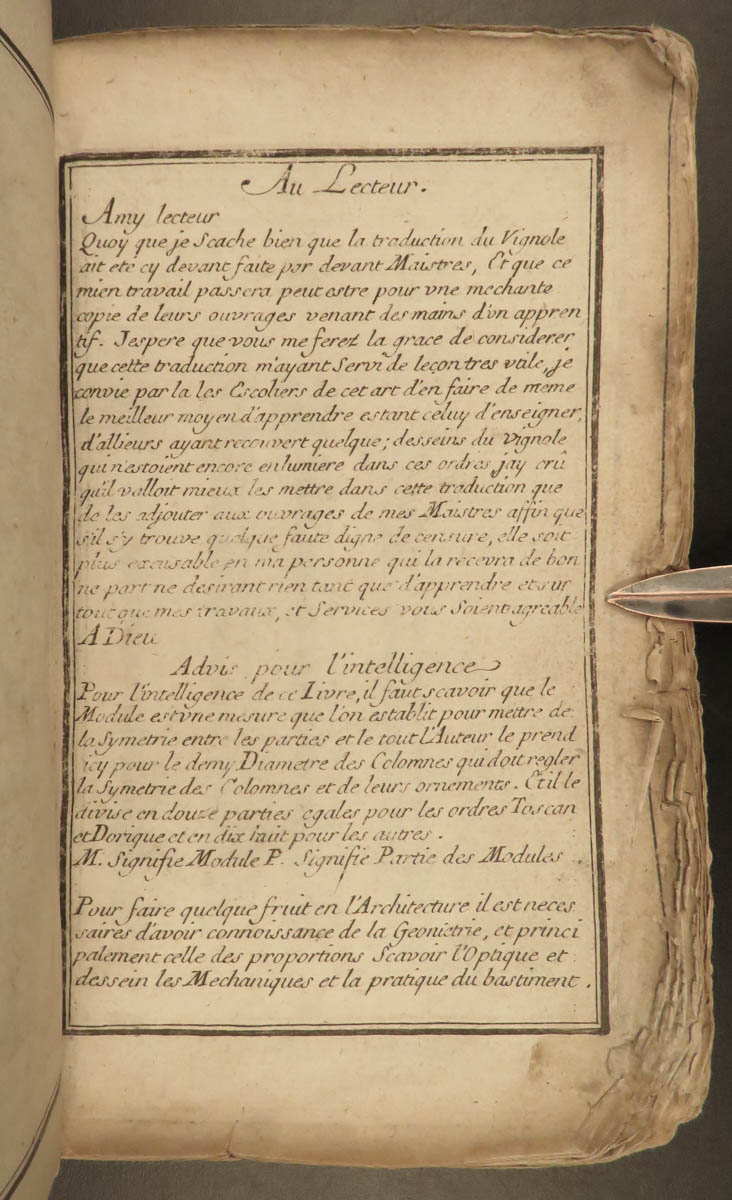 Au Lecteur.
Amy lecteur
Quoy que je Scache bien que la traduction du Vignole
ait eté cy devant faite par devant Maistres, Et que ce
mien travail passera peut estre pour vne mechante
copie de leurs ouvrages venant des mains d'vn appren
tif. Jespere que vous me ferez la grace de considerer
que cette traduction m'ayant Servi de leçon tres vtile, je
convie par la les Escoliers de cet art d'en faire de meme
le meilleur moyen d'apprendre estant celuy d'enseigner,
d'allieurs ayant recouvert quelque; desseins du Vignole
qui n'estoient encore en lumiere dans ces ordres jay crû
qu'il valloit mieux les mettre dans cette traduction que
de les adjouter aux ouvrages de mes Maistres affin que
s'il s'y trouve quelque faute digne de censure, elle soit
plus excusable en ma personne qui la recevra de bon
ne part ne desirant rien tant que d'apprendre et sur
tout que mes travaux, et Services vous Soient agreable
A Dieu
Advis pour l'intelligence
Pour l'intelligence de ce Livre, il faut scavoir que le
Module est vne mesure que l'on establit pour mettre de
la Symetrie entre les parties et le tout l'Auteur le prend
icy pour le demy Diametre des Colomnes qui doit regler
la Symetrie des Colomnes et de leurs ornements. Et il le
divise en douze parties egales pour les ordres Toscan
et Dorique et en dix huit pour les autres.
M. Signifie Module P. Signifie Partie des Modules.
Pour faire quelque fruit en l'Architecture il est neces
saires d'avoir connoissance de la Geometrie, et princi
palement celle des proportions Scavoir l'Optique et
dessein les Mechaniques et la pratique du bastiment.